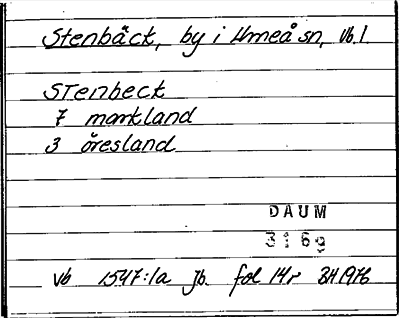 Stenbäck, by i Umeå sn, Vb l.
STenbeck
7 markland
3 öresland
DAUM
3169
Vb 1547:1a Jb. fol 14r BH 1976